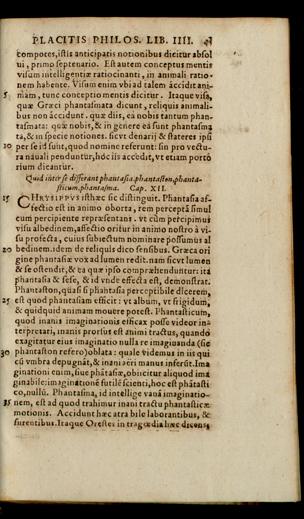 PLACITIS PHILOS. LIB. IIII.
compotes, istis anticipatis notionibus dicitur absol
ui, primo septenario. Est autem conceptus mentis
visum intelligentiæ ratiocinanti, in animali ratio-
nem habente. Visum enim vbi ad talem accidit ani-
5 mam, tunc conceptio mentis dicitur. Itaque visa,
quæ Græci phantasmata dicunt, reliquis animali-
bus non accidunt. quæ diis, ea nobis tantum phan-
tasmata: quæ nobis, & in genere ea sunt phantasma
ta, & in specie notiones. sicvt denarij & stateres ipsi
10 per se id sunt, quod nomine referunt: sin pro vectu-
ra nauali penduntur, hóc iis accedit, vt etiam porto
rium dicantur.
Quid inter se differant phantasia, phantaston, phanta-
sticum, phantasma. Cap. XII.
15 CHRYSIPPVS isthæc sic distinguit. Phantasia af-
fectio est in animo oborta, rem perceptã simul
cum percipiente repræsentans. vt cùm percipimus
visu albedinem, affectio oritur in animo nostro à vi-
su profecta, cuius subiectum nominare possumus al
20 bedinem. idem de reliquis dico sensibus. Græca ori
gine phantasiæ vox ad lumen redit. nam sicvt lumen
& se ostendit, & ea quæ ipso compræhenduntur: ita
phantasia & sese, & id vnde effecta est, demonstrat.
Phantaston, quasi si phantasia perceptibile diceres,
25 est quod phantasiam efficit: vt album, vt frigidum,
& quidquid animam mouere potest. Phantasticum,
quod inanis imaginationis efficax posse videor in-
terpretari, inanis prorsus est animi tractus, quando
exagitatur eius imaginatio nulla re imaginanda (sic
30 phantaston refero) oblata: quale videmus in iis qui
cũ vmbra depugnãt, & inani aëri manus inferũt. Ima
ginationi enim, siue phãtasiæ, obiicitur aliquod ima
ginabile: imaginatione futilẽ scienti, hoc est phãtasti
co, nullũ. Phantasma, id intellige vanã imaginatio-
35 nem, est ad quod trahimur inani tractu phantasticæ
motionis. Accidunt hæc atra bile laborantibus, &
furentibus. Itaque Orestes in tragœdia hæc dicens